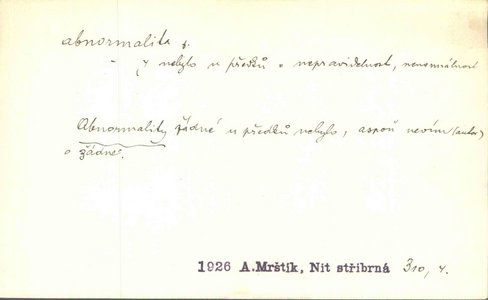 abnormalita f.
– y nebylo u předků = nepravidelnost, nenormálnost
Abnormality žádné u předků nebylo, aspoň nevím (autor)
o žádné.
1926 A.Mrštík, Nit stříbrná 310, 4.